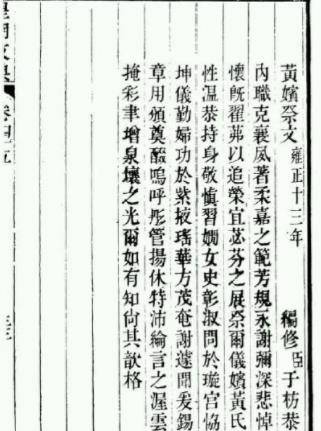 皇朝文典 卷四五
黃嬪祭文 雍正十三年 編修臣于枋恭
內職克襄夙著柔嘉之範芳規永謝彌深悲悼
懷既翟茀以追榮宜苾芬之展祭爾儀嬪黃氏
性溫恭持身敬慎習嫻女史彰淑問於璇宮協
坤儀勤婦功於紫掖瑤華方茂奄謝遽聞爰錫
章用頒奠醊嗚呼彤管揚休特沛綸言之渥雲
掩彩聿增泉壤之光爾如有知尙其歆格